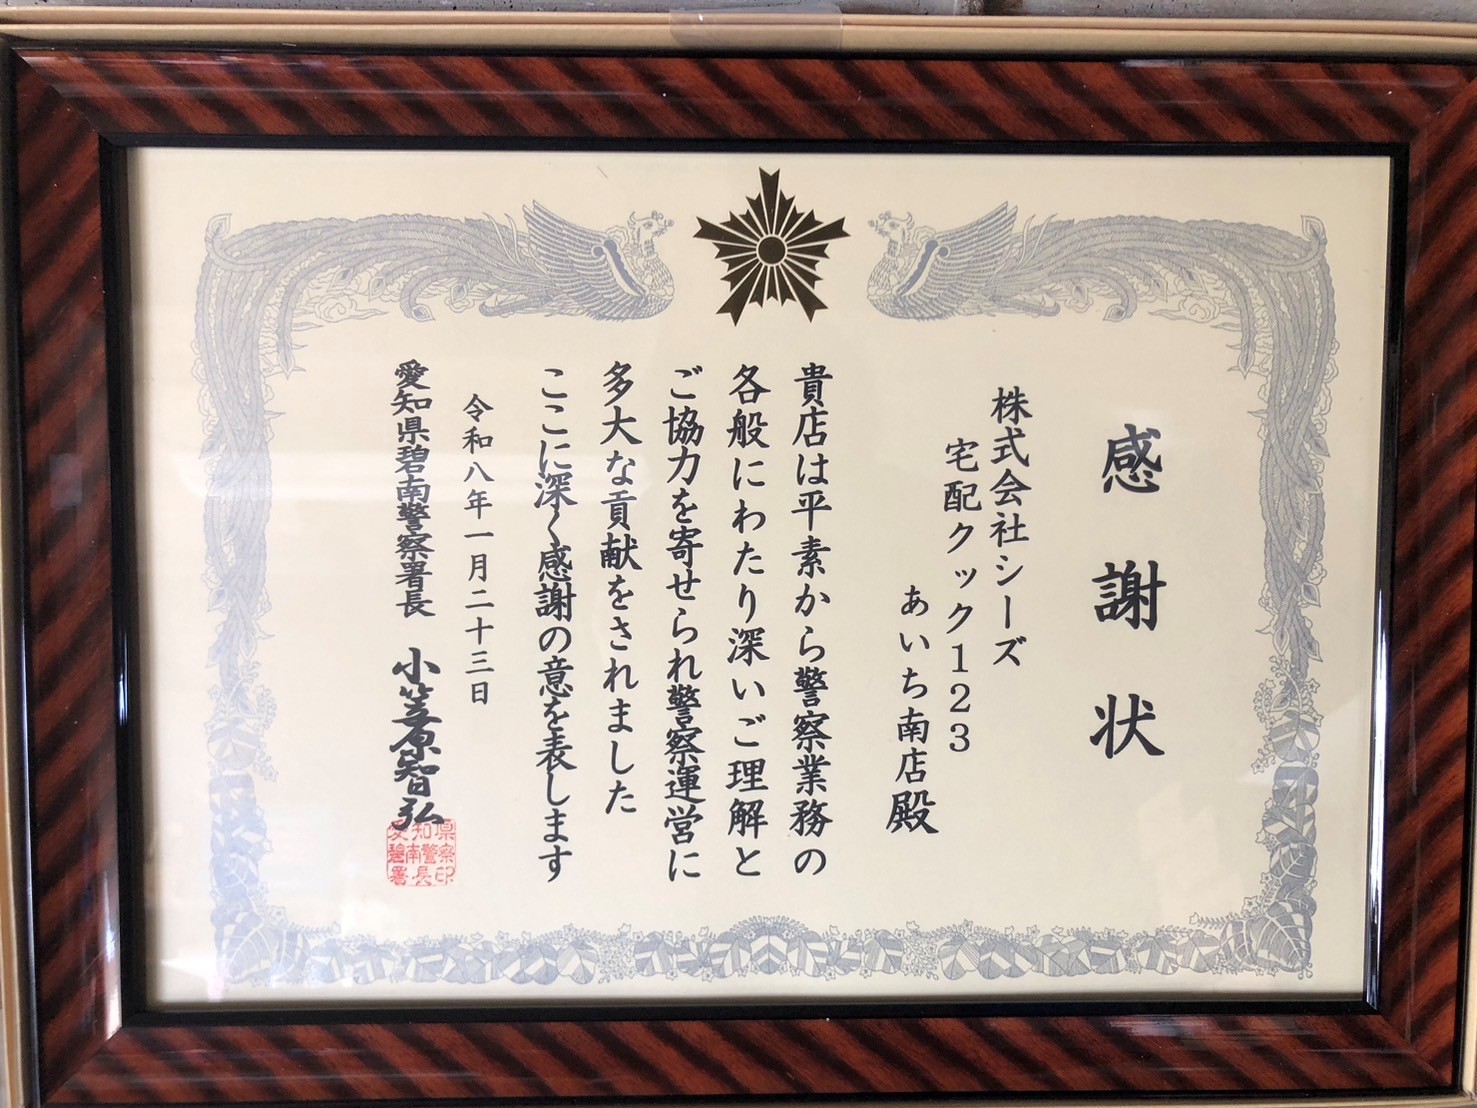 感謝状
株式会社シーズ
宅配クック123
あいち南店殿
貴店は平素から警察業務の
各般にわたり深いご理解と
ご協力を寄せられ警察運営に
多大な貢献をされました
ここに深く感謝の意を表します
令和八年一月二十三日
愛知県碧南警察署長 小笠原智弘
県察印
知警長
愛碧南署